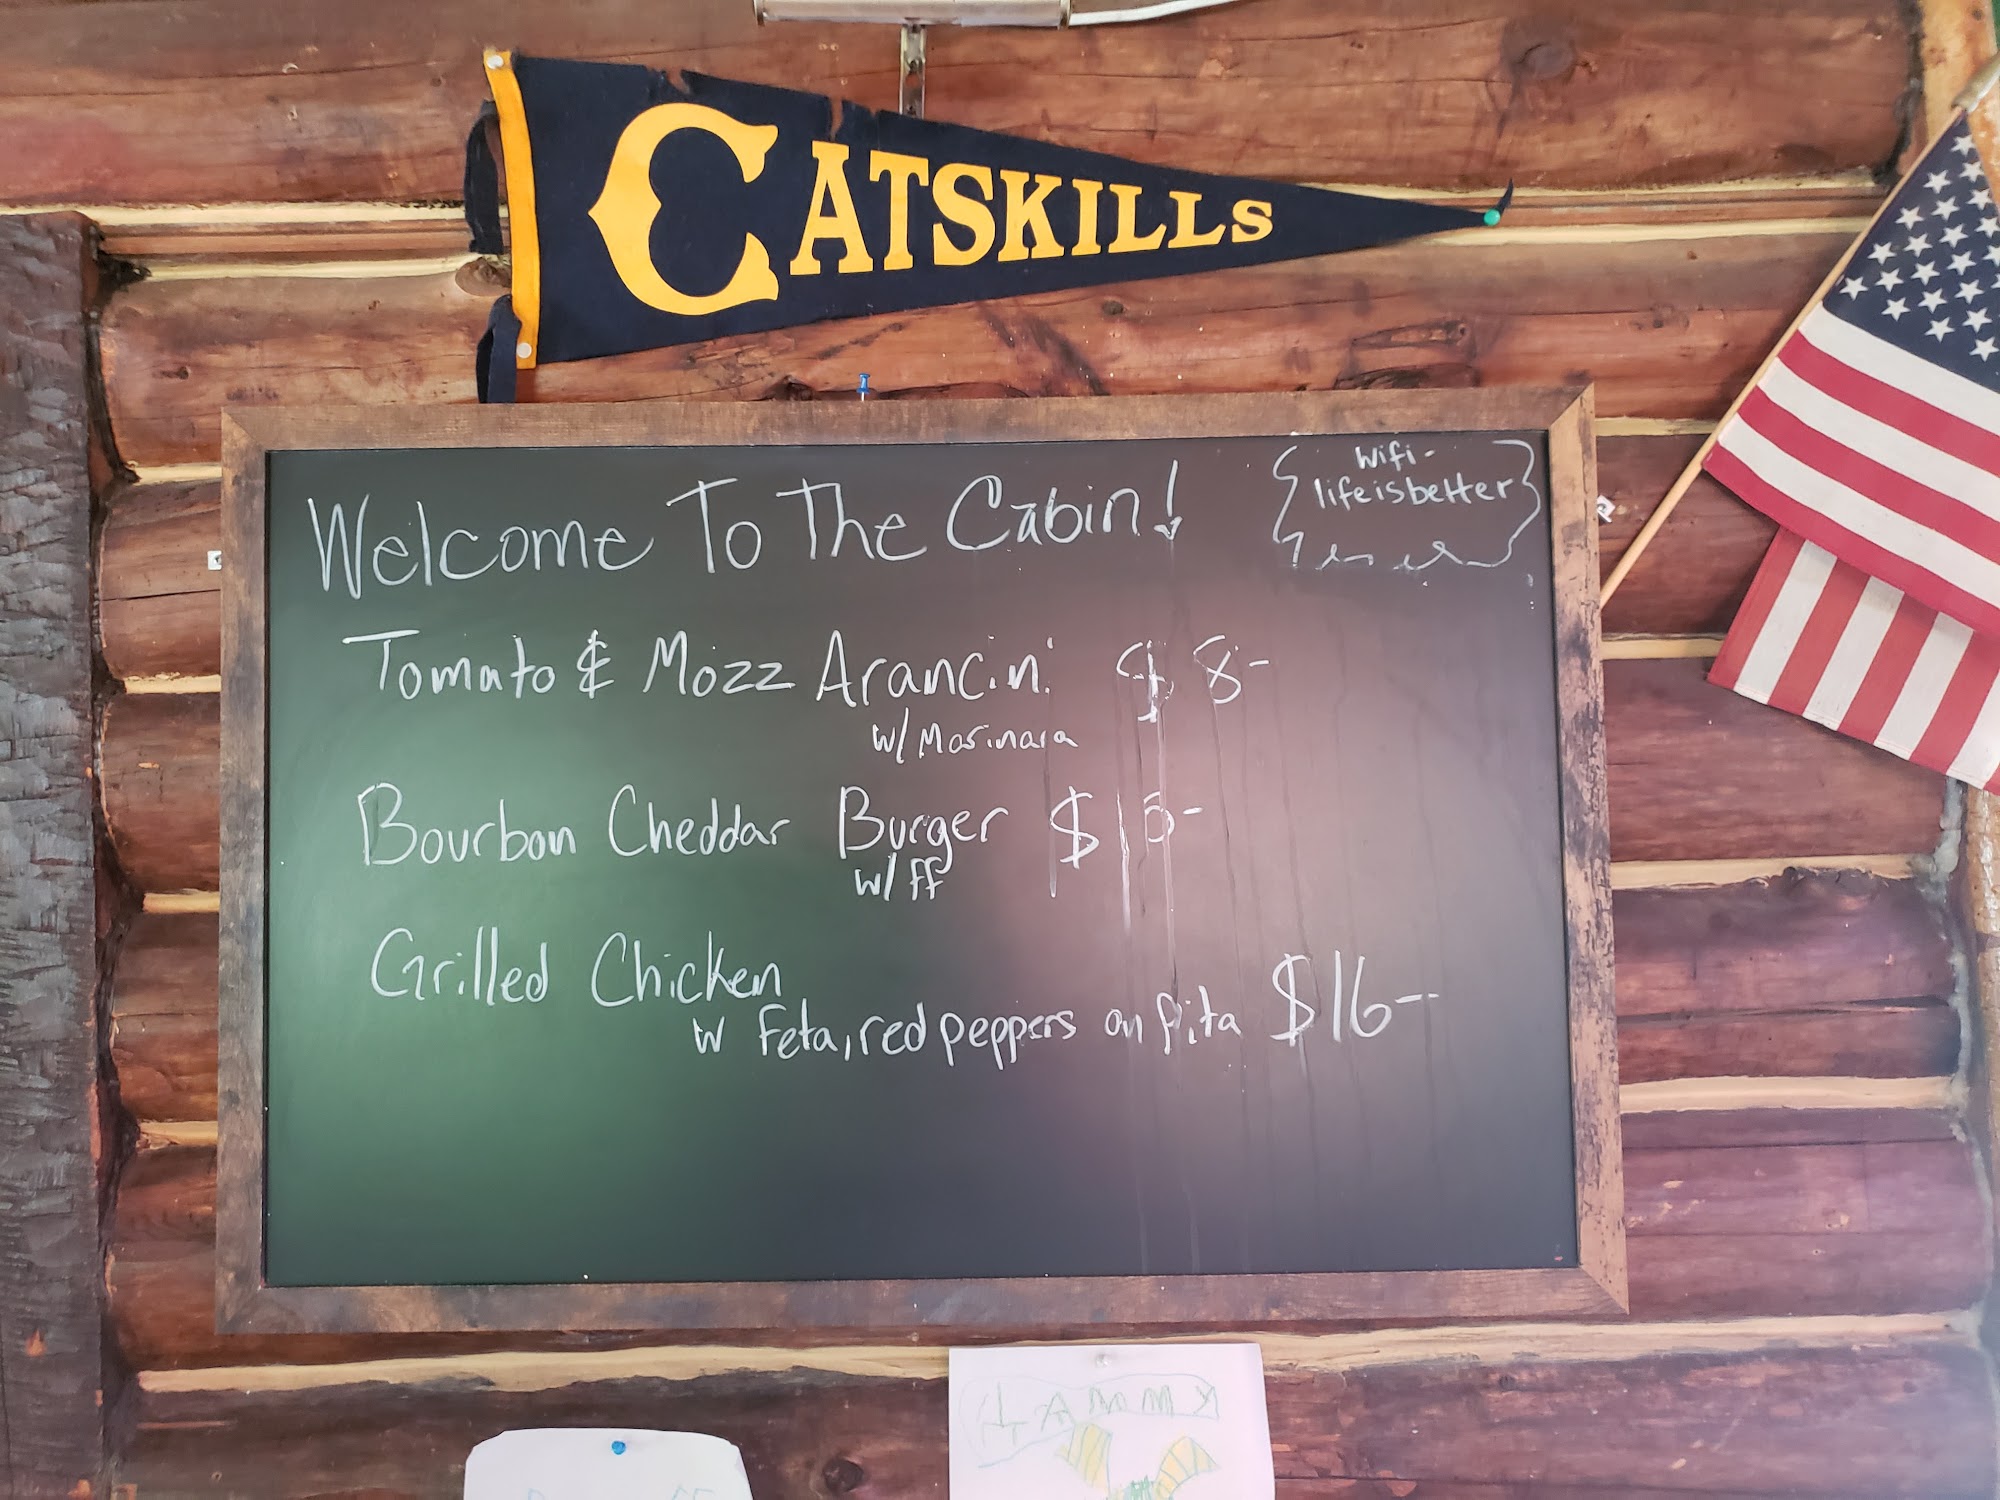 CATSKILLS
Wifi-
lifeisbetter
Welcome To The Cabin!
Tomato & Mozz Arancini $8-
w/ Marinara
Bourbon Cheddar Burger
w/ ff
Grilled Chicken
w Feta, red peppers on pita $16-